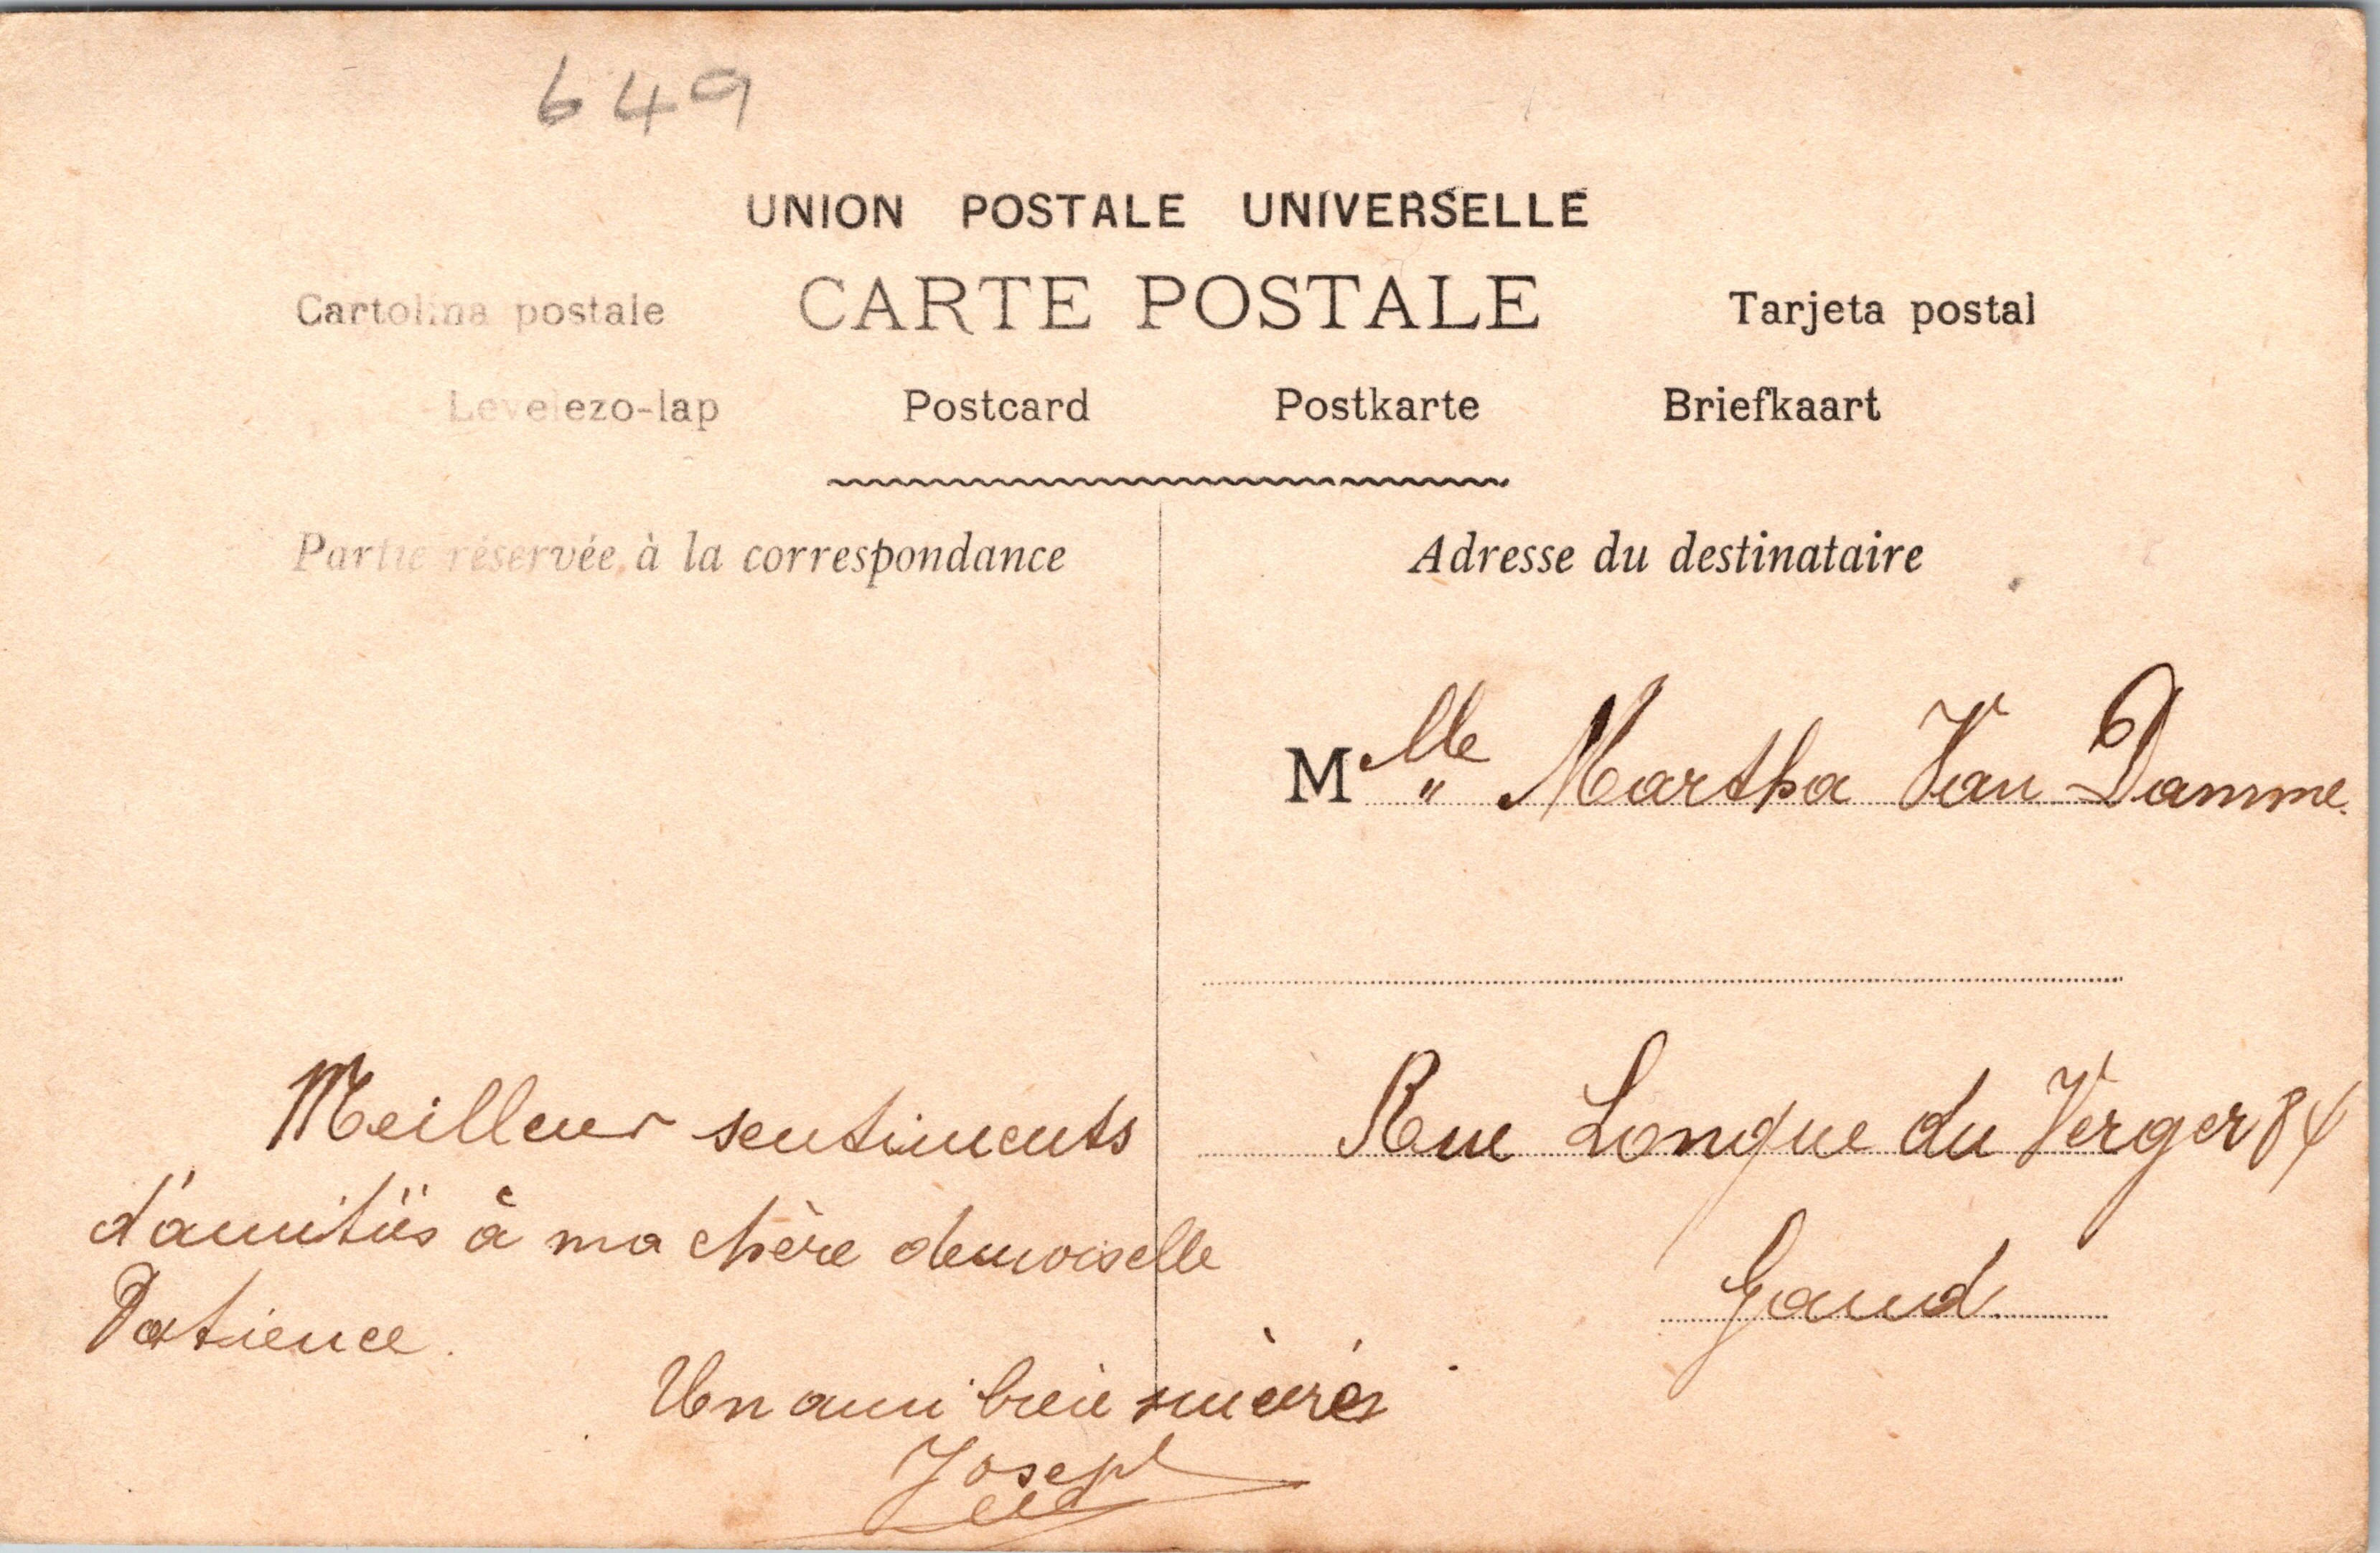 649
UNION POSTALE UNIVERSELLE
Cartolina postale CARTE POSTALE Tarjeta postal
Levelezo-lap Postcard Postkarte Briefkaart
Partie réservée à la correspondance
Adresse du destinataire
Mlle Martha Van Damme
Rue Longue du Verger 84
Gand
Meilleur sentiments
d'amitiés à ma chère demoiselle
Patience.
Un ami bien
Joseph